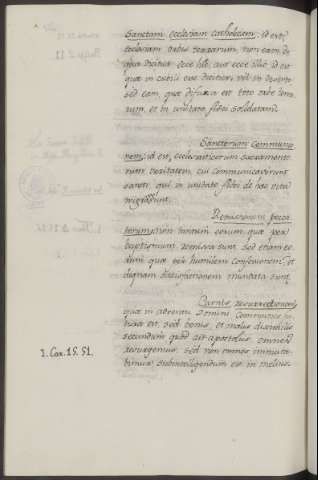 Sanctam ecclesiam catholicam; id est,
ecclesiam totius terrarum, non eam de
qua dicitur: ecce hic aut ecce illic, id est
quæ in cubili eius
sed eam, quæ difusa est toto orbe terra
rum, et in unitate fidei solidatam.
Sanctorum communio
nem; id est, ecclesiasticorum sacramento
rum veritatem, cui communicaverunt
sancti, qui in unitate fidei de hac vita
migrarunt.
Remissionem pecca
torum; non tantum eorum, quæ per
baptismum remissa sunt sed etiam eo
rum quæ per humilem confessionem, et
dignam satisfactionem mundata sunt.
Carnis resurrectionem;
quæ in adventu Domini communis fu
tura est, sed bonis, et malis dissimilis
secundum quod ait apostolus: omnes
1. Cor. 15. 51. resurgemus, sed non omnes immuta
bimur subintelligendum est in melius.